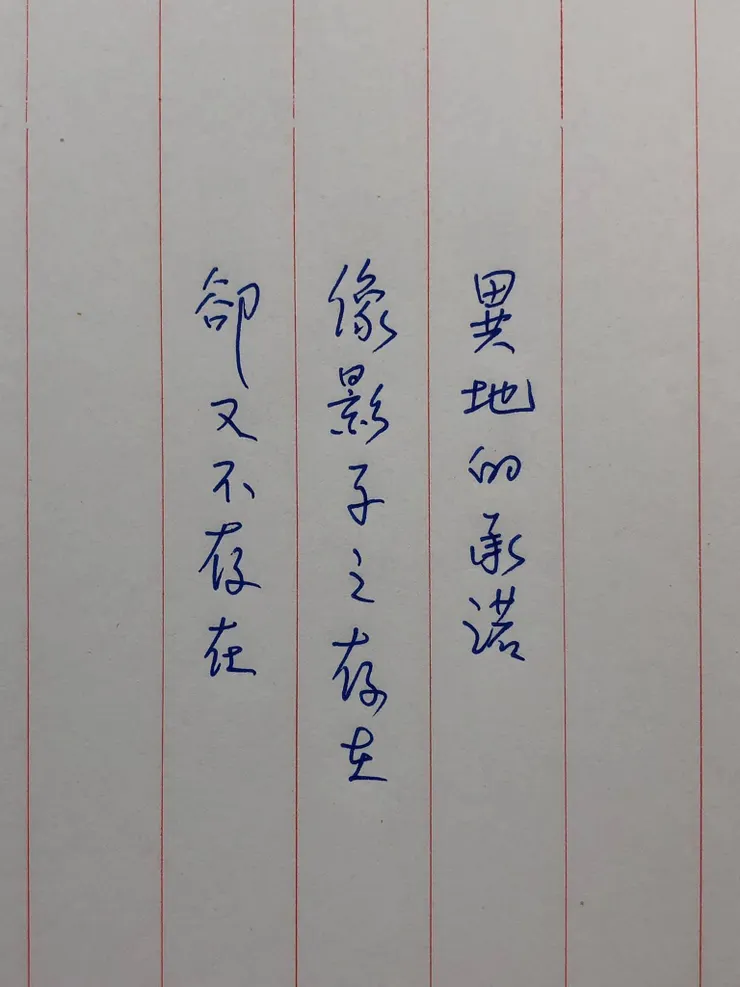 異地的承諾
像影子之存在
卻又不存在